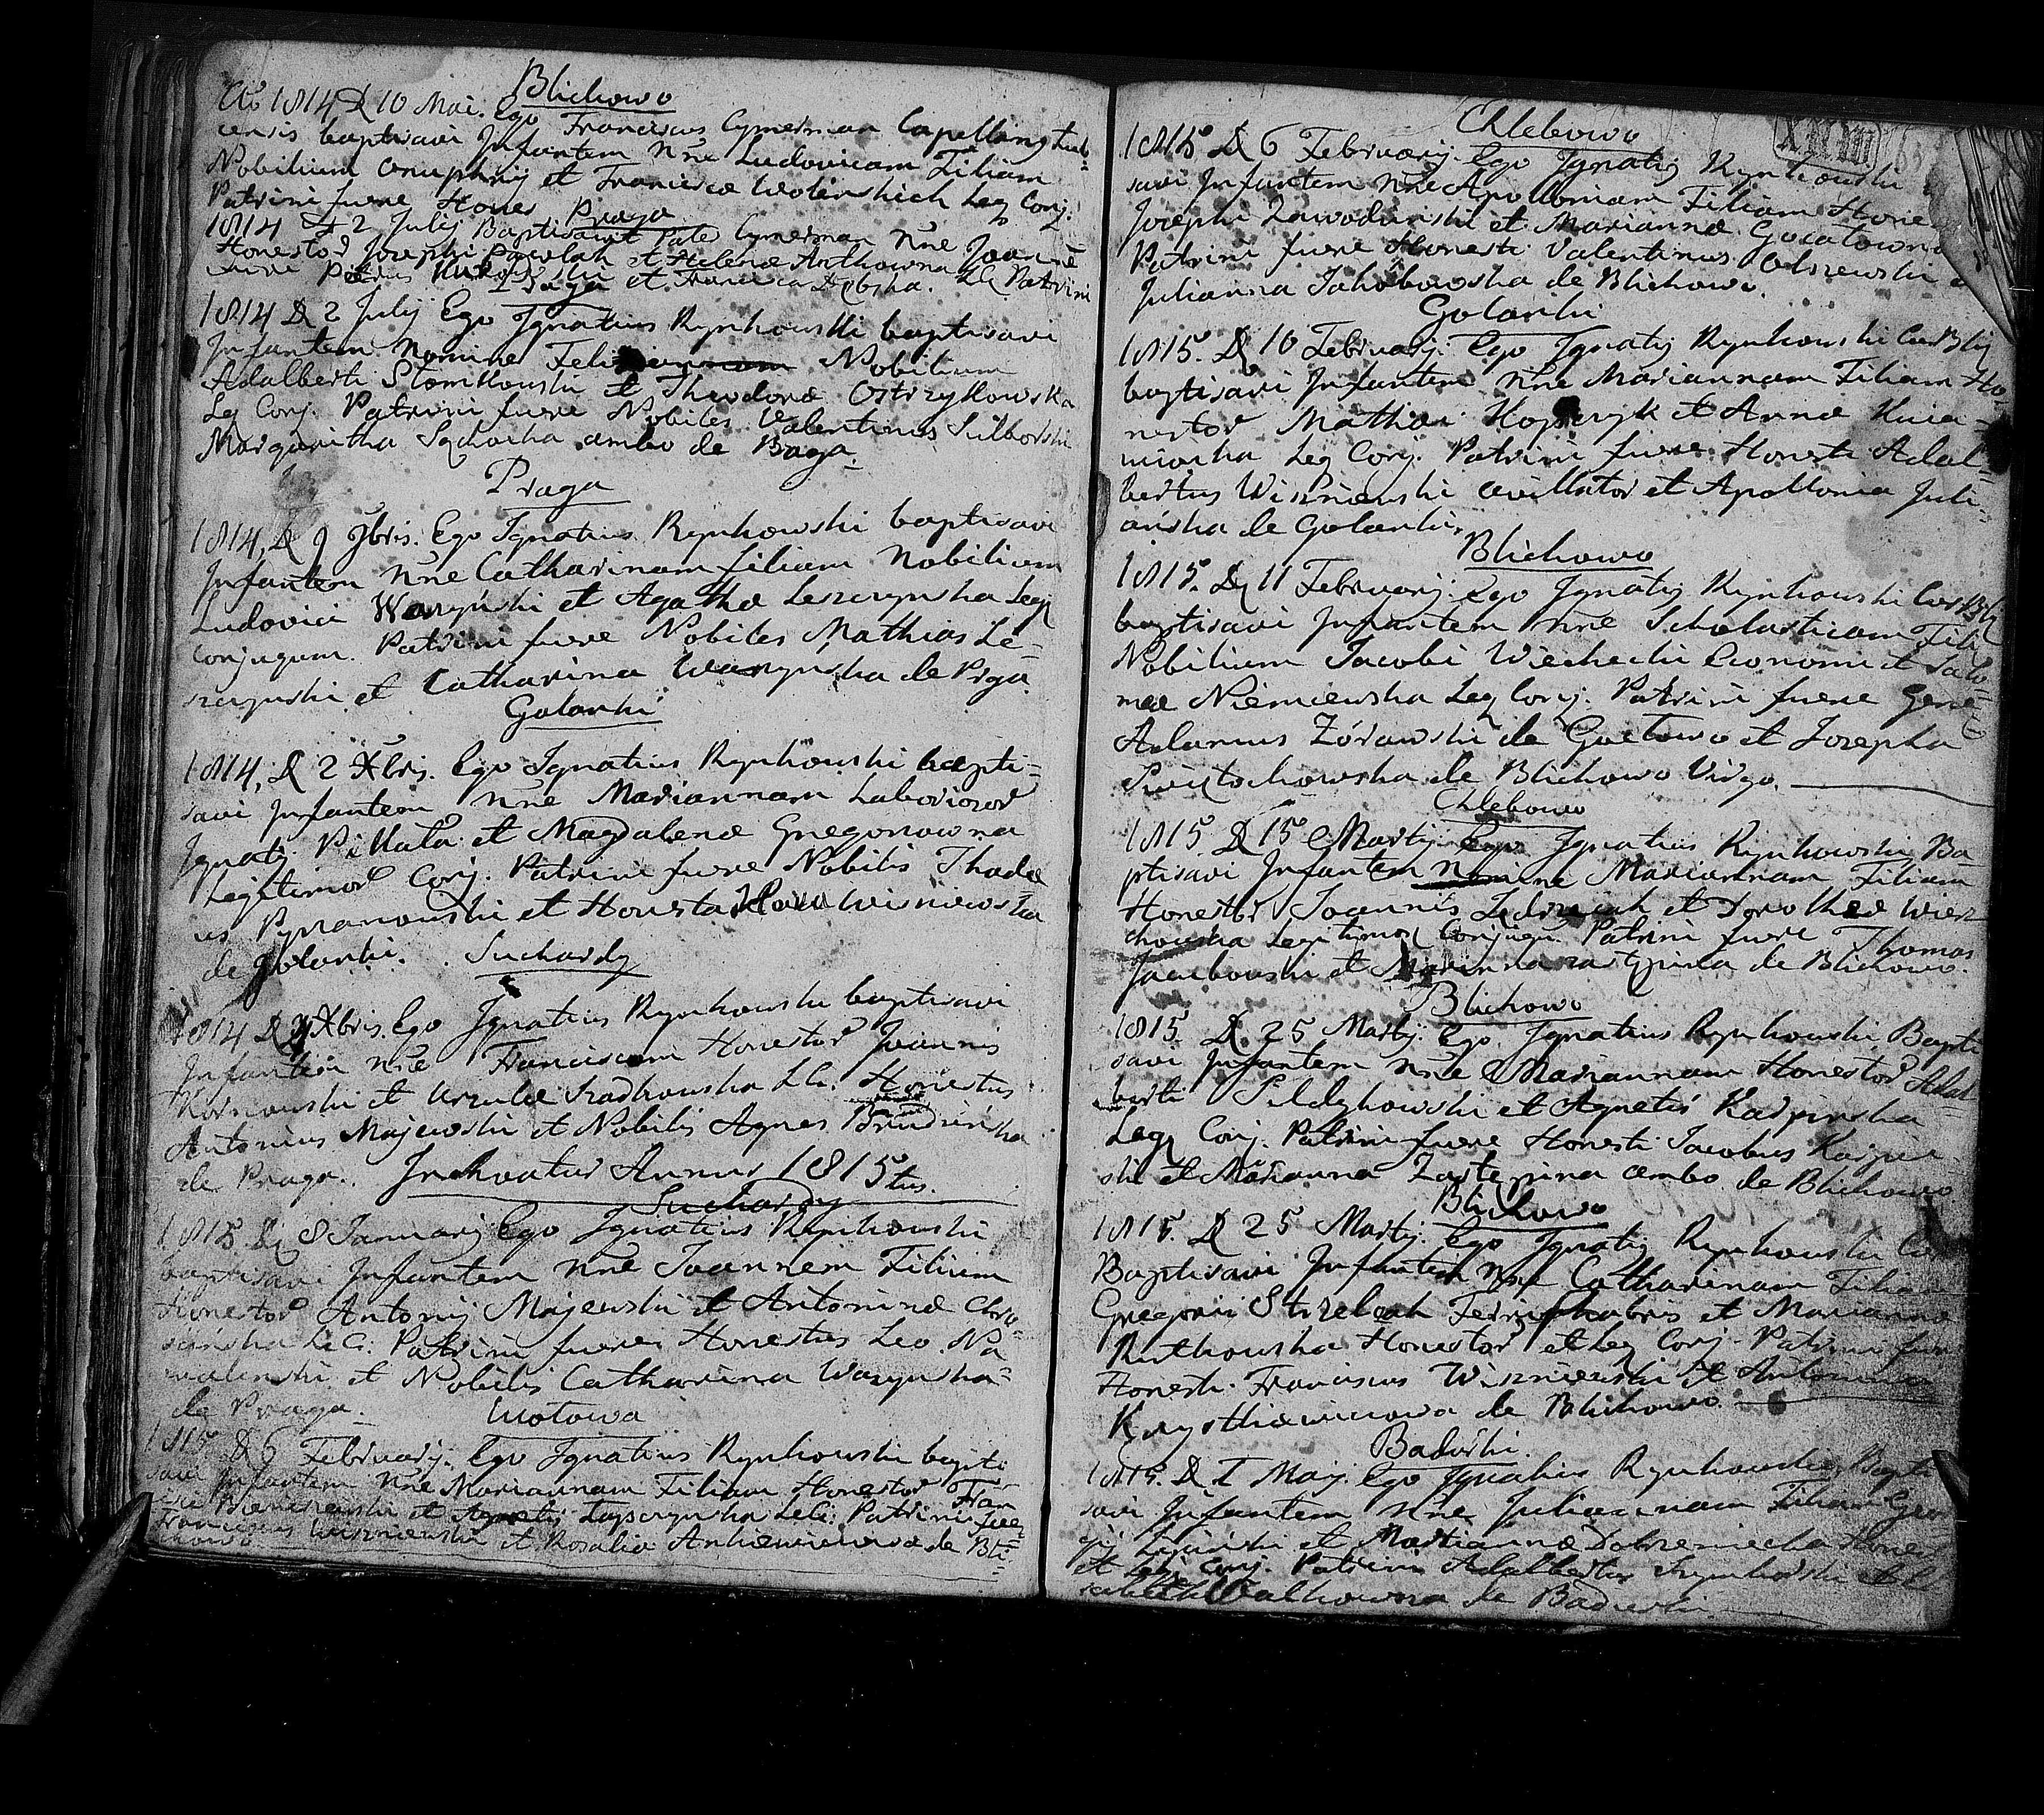 Blichowo
Ao 1814 D 10 Mai. Ego Franciscus Cymerman Capellanus
censis baptisavi Infantem Nne Ludovicam Filiam
Nobilium Onuphrij et Francisca Wolinskich Leg Conj.
Patrini fuere Hones
Praga
1814 D 2 Julij Baptisavit Pater Cymerman Nne Joanne
Honestor Josephi Pawlak et Helenæ Anthowna LC Patrini
fuere Petrus et Francisca Dębska.
Praga
1814 D 2 Julij Ego Ignatius Rynkowski baptisavi
Infantem Nomine Nobilium
Adalberti Słomkowski et Theodoræ Ostrzykowska
Leg Conj. Patrini fuere Nobiles Valentinus Sulborski
Margaritha ambo de Praga
Praga
1814, D 9 7bris. Ego Ignatius Rynkowski baptisavi
Infantem Nne Catharinam filiam Nobilium
Ludovici Waryński et Agathæ Leszczynska Leg
Conjugum. Patrini fuere Nobiles Mathias Le-
szczynski et Catharina Warynska de Prga
Golanki
1814, D 2 Xbris. Ego Ignatius Rynkowski bapti-
savi Infantem Nne Mariannam Laborioror
Ignatij Pikała et Magdalenæ Gregorowna
Legitimor Conj. Patrini fuere Nobilis Thadæ
us Pyzanowski et Honesta Wisniewska
de Golanki.
Suchardy
1814 D Xbris. Ego Ignatius Rynkowski baptisavi
Infantem Nne Franciscam Honestor Joannis
et Urzulæ Szadkowska LC. Honestus
Antonius Majewski et Nobilis Agnes Brudzinska
de Praga.
Inchoatur Annus 1815tus.
Suchardy
1815 D 8 Januarij Ego Ignatius Rynkowski
baptisavi Infantem Nne Joannem Filium
Honestor Antonij Majewski et Antoninæ Chro-
scinska LC: Patrini fuere Honestus Leo Na
walinski et Nobilis Catharina Warynska
de Praga.
1815 D 6 Februarij. Ego Ignatius Rynkowski bapti
savi Infantem Nne Mariannam Filiam Honestor Fran
cisci et Agnetis LC: Patrini fuer
Franciscus Wisniewski et Rosalia de Bli-
chowo
Chlebowo
1815 D 6 Februarij. Ego Ignatij Rynkowski
savi Infantem Nne Apolloniam Filiam Hone
Josephi Zawadzinski et Mariannæ
Patrini fuere Honesti Valentinus Olszewski
Julianna Jakobowska de Blichowo.
Golanki
1815. D 10 Februarij. Ego Ignatij Rynkowski Cur Blij
baptisavi Infantem Nne Mariannam Filiam Ho-
nestor Mathiæ Kopczyk et Annæ Knia-
Leg Conj. Patrini fuere Honesti Adal-
bertus Wisniewski et Apollonia Juli-
ańska de Golanki.
Blichowo
1815. D 11 Februarij: Ego Ignatij Rynkowski Cur Blij
baptisavi Infantem Nne Scholasticam Fili
Nobilium Jacobi Wiechecki Economi et Salo-
meæ Niemiewska Leg Conj. Patrini fuere Gene-
Adamus Zórawski de Goctowo et Josepha
Swiętochowska de Blichowo Virgo.
Chlebowo
1815 D 15 Martij Ego Ignatius Rynkowski Ba-
ptisavi Infantem Nomine Mariannam Filiam
Honestor Joannis et Dorotheæ Wierz
chowska Legitimor Conjugu. Patrini fuere Thomas
Jacubowski et Marianna Zastępina de Blichowo.
Blichowo
1815 D. 25 Martij. Ego Ignatius Rynkowski Bapti
savi Infantem Nne Mariannam Honestor Adal-
berti et Agnetis Karpinska
Leg Conj. Patrini fuere Honesti Jacobus Karpin
ski et Marianna Zastepina ambo de Blichowo
Blichowo
1815. D 25 Martij. Ego Ignatij Rynkowski Cur
Baptisavi Infantem Nne Catharinam Filiam
Gregorii Strzelcak et Marianna
Rutkowska Honestor et Leg Conj. Patrini fuer
Honesti Franciscus Wisniewski et Antonina
Krystkiewiczowa de Blichowo.
Badurki.
1815. D 1 Maij. Ego Ignatius Rynkowski Bapti
savi Infantem Nne Juliannam Filiam Geor
gij et Mariannæ Dobrzeniecka Hones
et Leg Conj. Patrini Adalbertus
de Badurki